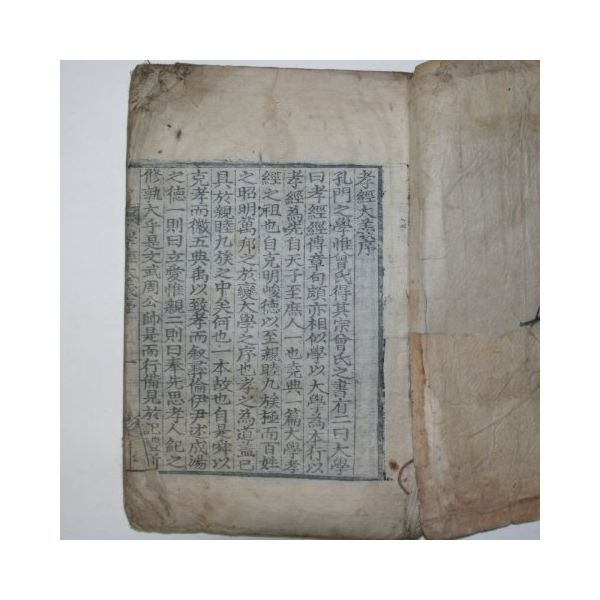 孝經大義序
孔門之學惟曾氏得其宗曾氏之書有二曰大學
曰孝經經傳章句頗亦相似學以大學為本行以
孝經為先自天子至庶人一也堯典一篇大學孝
經之祖也自克明峻德以至親睦九族極而百姓
之昭明萬邦之於變大學之序也孝之為道蓋已
具於親睦九族之中矣何也一本故也自是舜以
克孝而徽五典禹以致孝而叙彝倫伊尹述成湯
之德一則曰立愛惟親二則曰奉先思孝人紀之
修孰大乎是文武周公師是而行備見於記